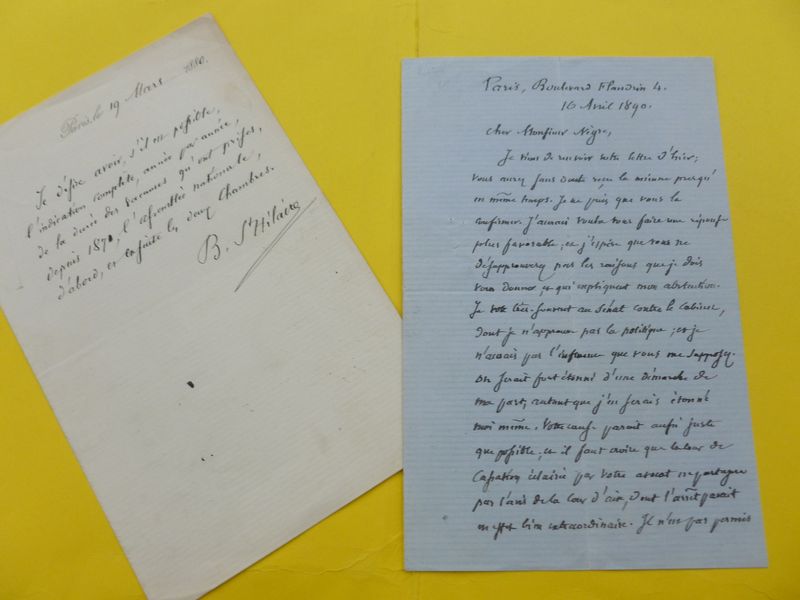 Paris, le 19 Mars 1880.
Je désire avoir, s'il est possible,
l'indication complète, année par année,
de la durée des vacances qu'ont prises,
depuis 1871, l'assemblée nationale,
d'abord, et ensuite les deux Chambres.
B. St Hilaire
Paris, Boulevard Flandrin 4.
16 Avril 1890.
Cher Monsieur Nègre,
Je viens de recevoir votre lettre d'hier;
vous aurez sans doute reçu la mienne presqu'
en même temps. Je ne puis que vous la
confirmer. J'aurais voulu vous faire une réponse
plus favorable; et j'espère que vous ne
désapprouverez pas les raisons que je dois
vous donner, et qui expliquent mon abstention.
Je vote très-souvent au Sénat contre le cabinet,
dont je n'approuve pas la politique; et je
n'aurais pas l'influence que vous me supposez.
On serait fort étonné d'une démarche de
ma part, autant que j'en serais étonné
moi même. Votre cause parait aussi juste
que possible; et il faut croire que la Cour de
Cassation éclairée par votre avocat ne partagera
pas l'avis de la Cour d'aix, dont l'arrêt parait
en effet bien extraordinaire. Il n'est pas permis